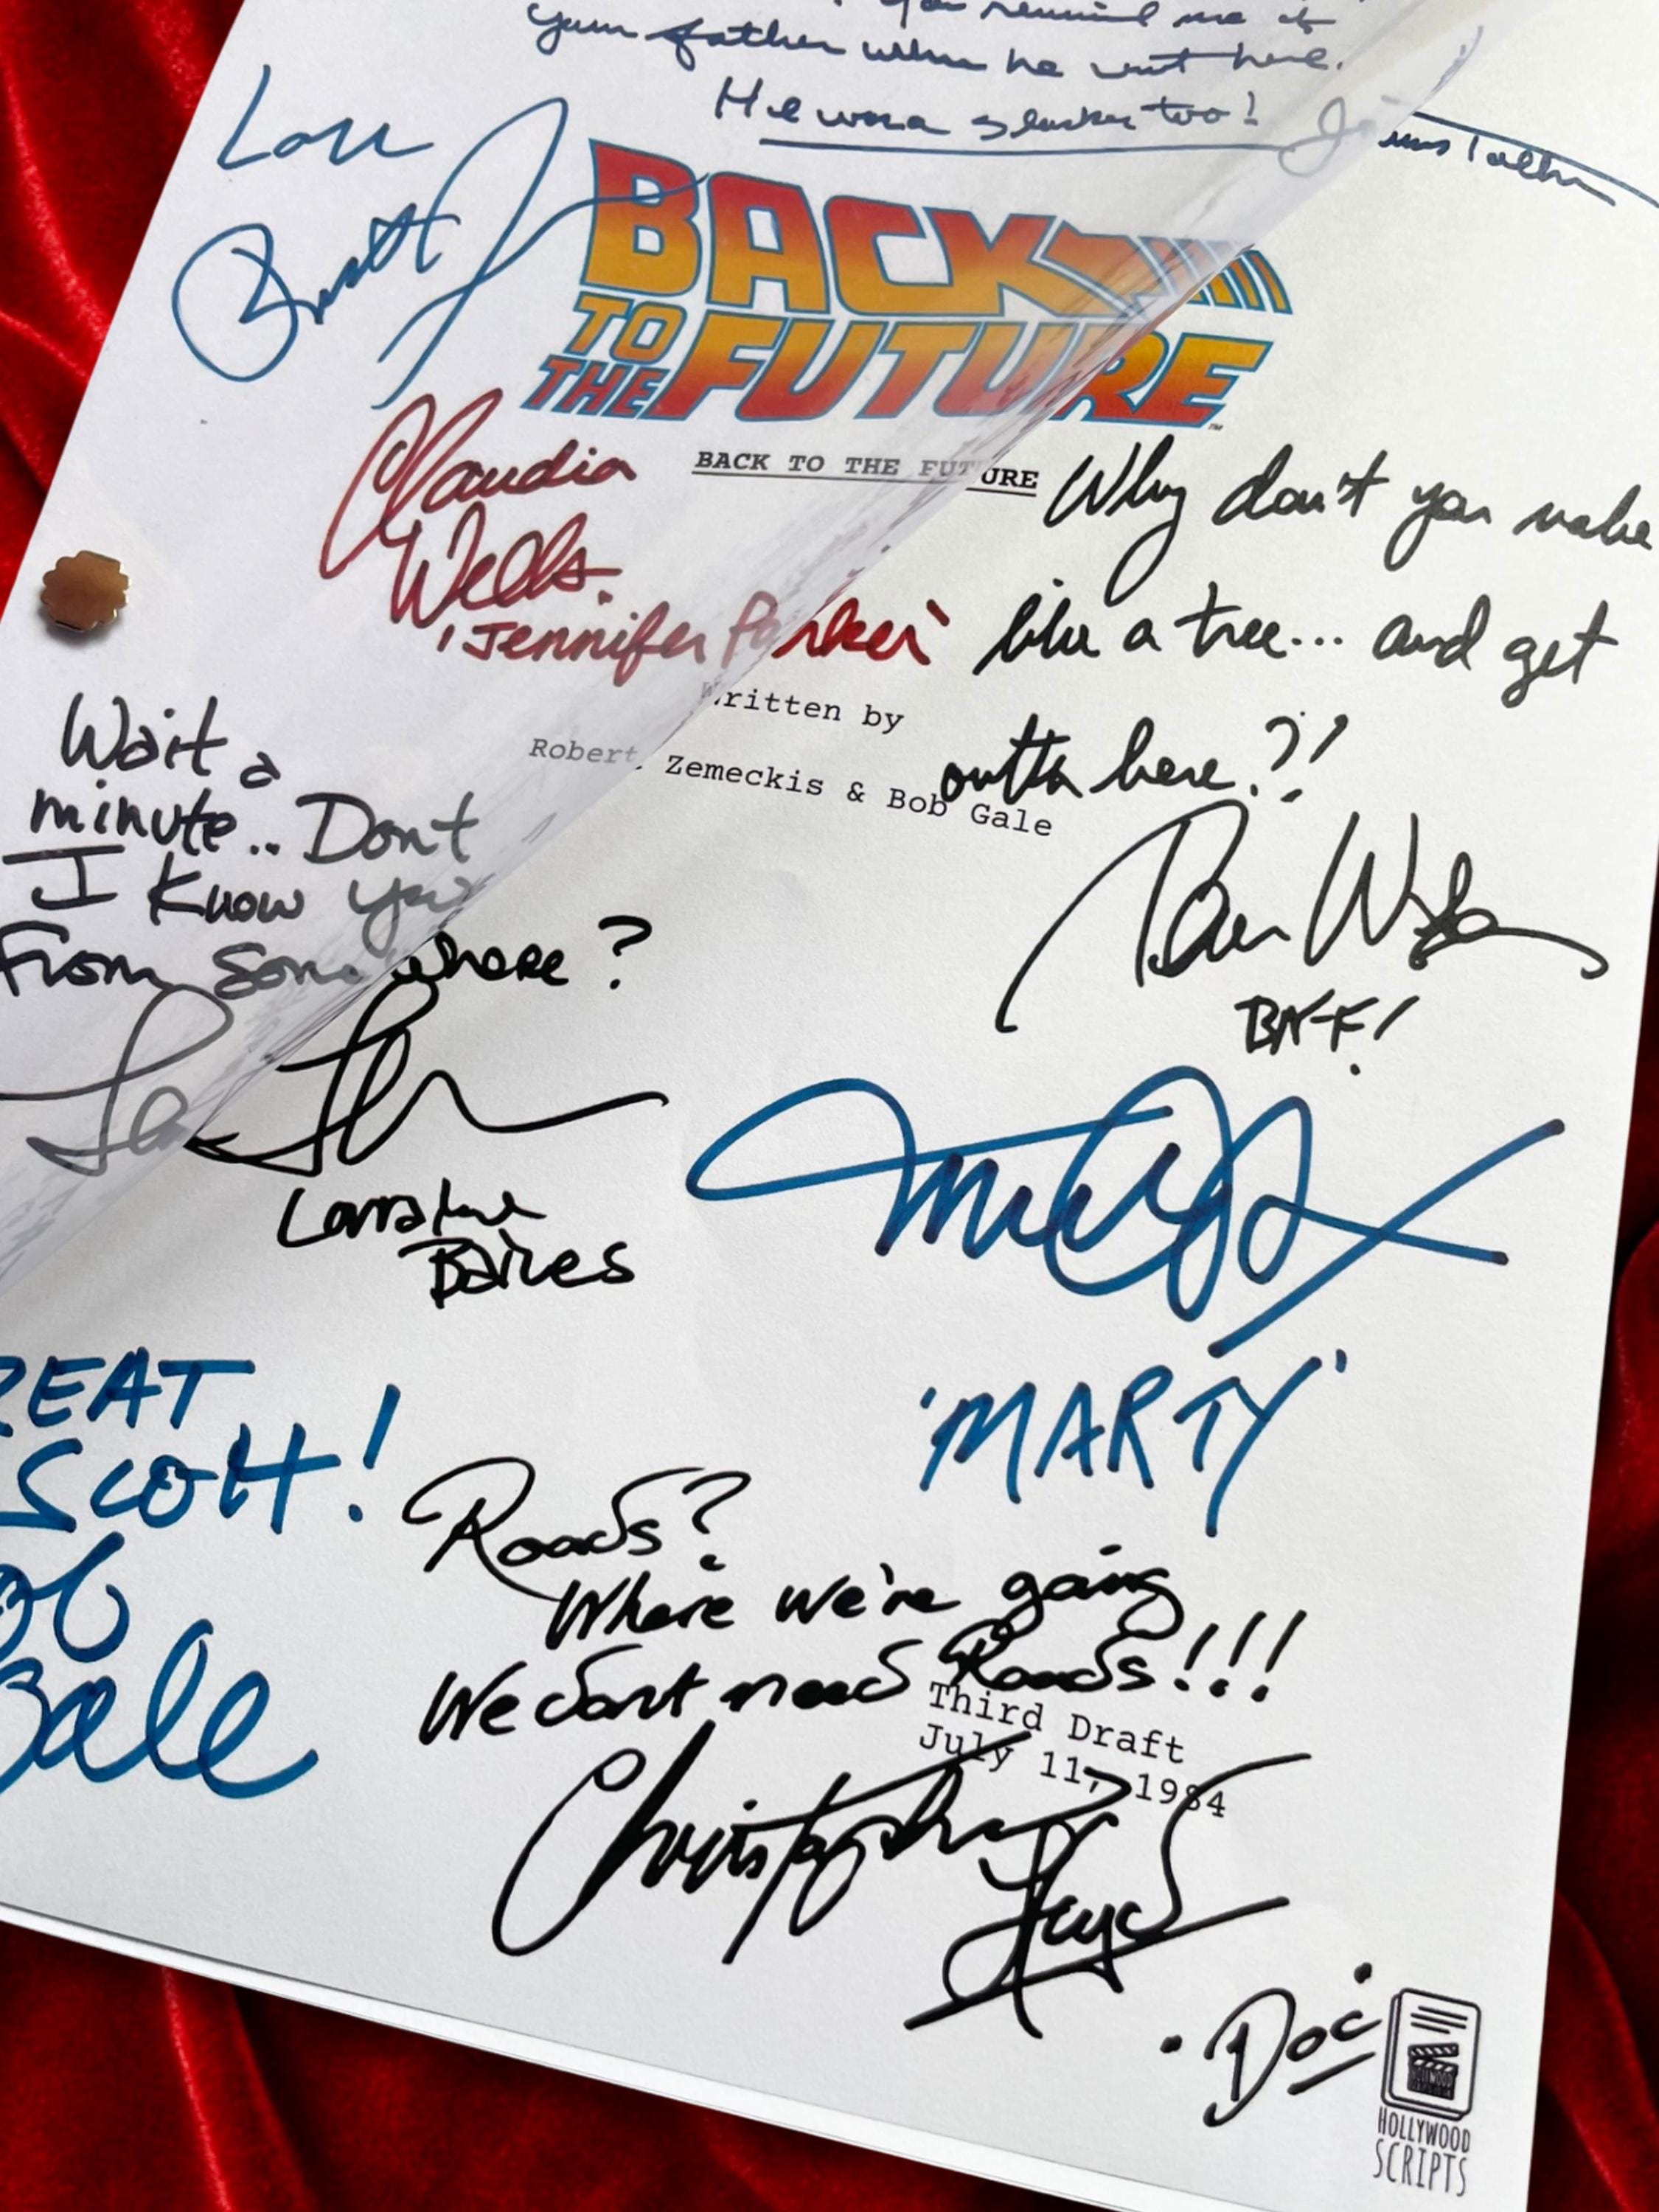 You remind me of
your father when he went here.
He was a slacker too! James Tolkan
BACK
TO
THE FUTURE
BACK TO THE FUTURE
Claudia
Wells.
'Jennifer Parker'
Why don't you make
like a tree... and get
outta here?!
Written by
Robert Zemeckis & Bob Gale
BIFF!
Wait a
minute.. Dont
I know you
From somewhere?
Lorraine
Baines
'MARTY'
REAT
SCOTT!
ob
Gale
Roads?
Where we're going
We dont need Roads!!!
Third Draft
July 11, 1984
Christopher
Lloyd
"Doc"
HOLLYWOOD
SCRIPTS